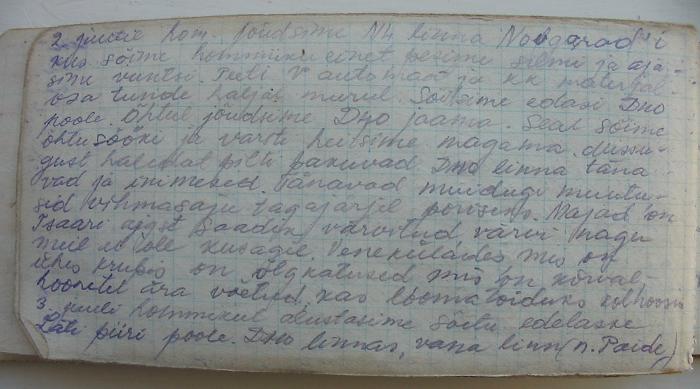 2. juulil hom. jõudsime N4 linna Novgorod'i
kus sõime hommiku einet pesime silmi ja aja-
sime vuntsi. Teeti V automaat ja kk materjal-
osa tunde haljal murul. Sõitsime edasi DNO
poole. Õhtul jõudsime DNO jaama Seal sõime
õhtusööki ja varsti heitsime magama.
gust pilti pakuvad DNO linna täna-
vad ja inimesed. Tänavad muidugi muutu-
sid vihmasaju tagajärjel poriseks. Majad on
Tsaari ajast saadik värvitud värvi nagu
meil ei ole kusagil. Venekülades mis on
ühes krubis on õlgkatused mis on kõrval-
hoonetel ära võetud kas loomatoiduks kolhoosi
3. juuli hommikul alustasime sõitu edelasse
Läti piiri poole. DNO linnas, vana linn (n. Paide)